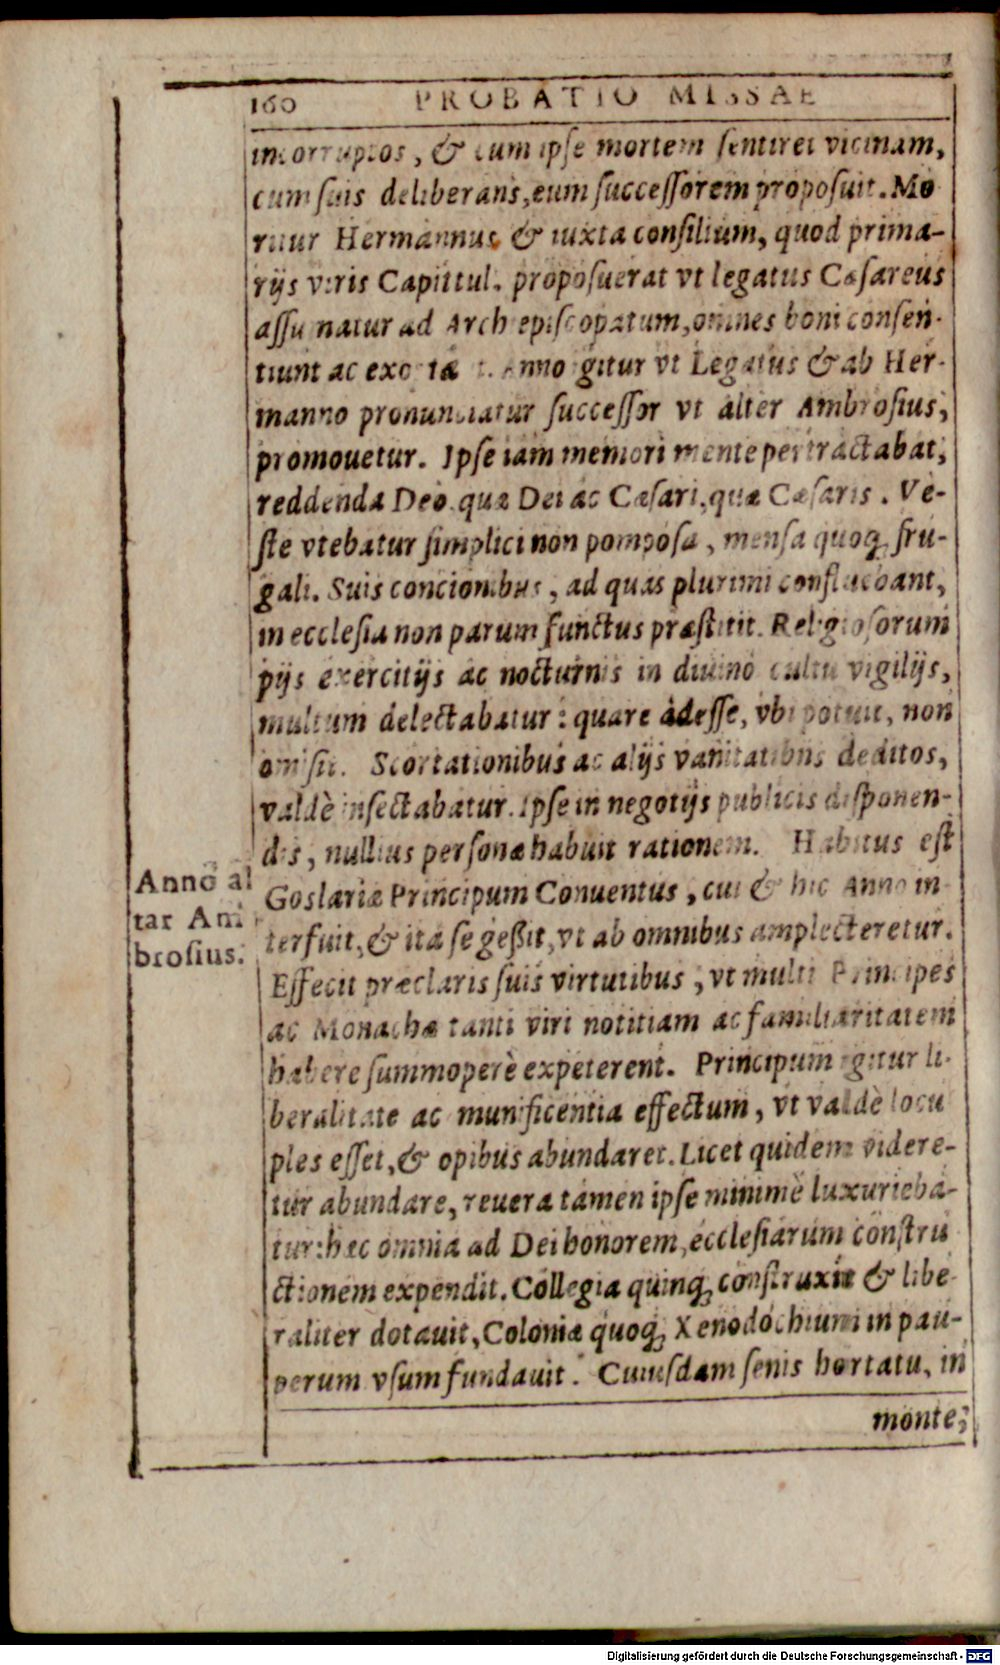 160 PROBATIO MISSAE
incorruptos, & cum ipse mortem sentiret vicinam,
cum suis deliberans, eum successorem proposuit. Mo
ritur Hermannus & iuxta consilium, quod prima-
rijs viris Capittul. proposuerat vt legatus Cæsareus
assumatur ad Archiepiscopatum, omnes boni consen-
tiunt ac Anno igitur vt Legatus & ab Her-
manno pronunciatur successor vt alter Ambrosius,
promouetur. Ipse iam memori mente pertractabat,
reddenda Deo, quæ Dei ac Cæsari, quæ Cæsaris. Ve-
ste vtebatur simplici non pomposa, mensa quoq; fru-
gali. Suis concionibus, ad quas plurimi confluebant,
in ecclesia non parum functus præstitit. Religiosorum
pijs exercitijs ac nocturnis in diuino cultu vigilijs,
multum delectabatur: quare adesse, vbi potuit, non
omisit. Scortationibus ac alijs vanitatibus deditos,
valdè insectabatur. Ipse in negotijs publicis disponen-
dis, nullius personæ habuit rationem. Habitus est
Goslariæ Principum Conuentus, cui & hic Anno in
terfuit, & ita se geßit, vt ab omnibus amplecteretur.
Effecit præclaris suis virtutibus, vt multi Principes
ac Monachæ tanti viri notitiam ac familiaritatem
habere summoperè expeterent. Principum igitur li-
beralitate ac munificentia effectum, vt valdè locu
ples esset, & opibus abundaret. Licet quidem videre-
tur abundare, reuera tamen ipse minimè luxurieba-
tur: hæc omnia ad Dei honorem, ecclesiarum constru
ctionem expendit. Collegia quinq; construxit & libe-
raliter dotauit, Coloniæ quoq; Xenodochium in pau-
perum vsum fundauit. Cuiusdam senis hortatu, in
monte;
Anno al
tar Am
brosius.
Digitalisierung gefördert durch die Deutsche Forschungsgemeinschaft - DFG